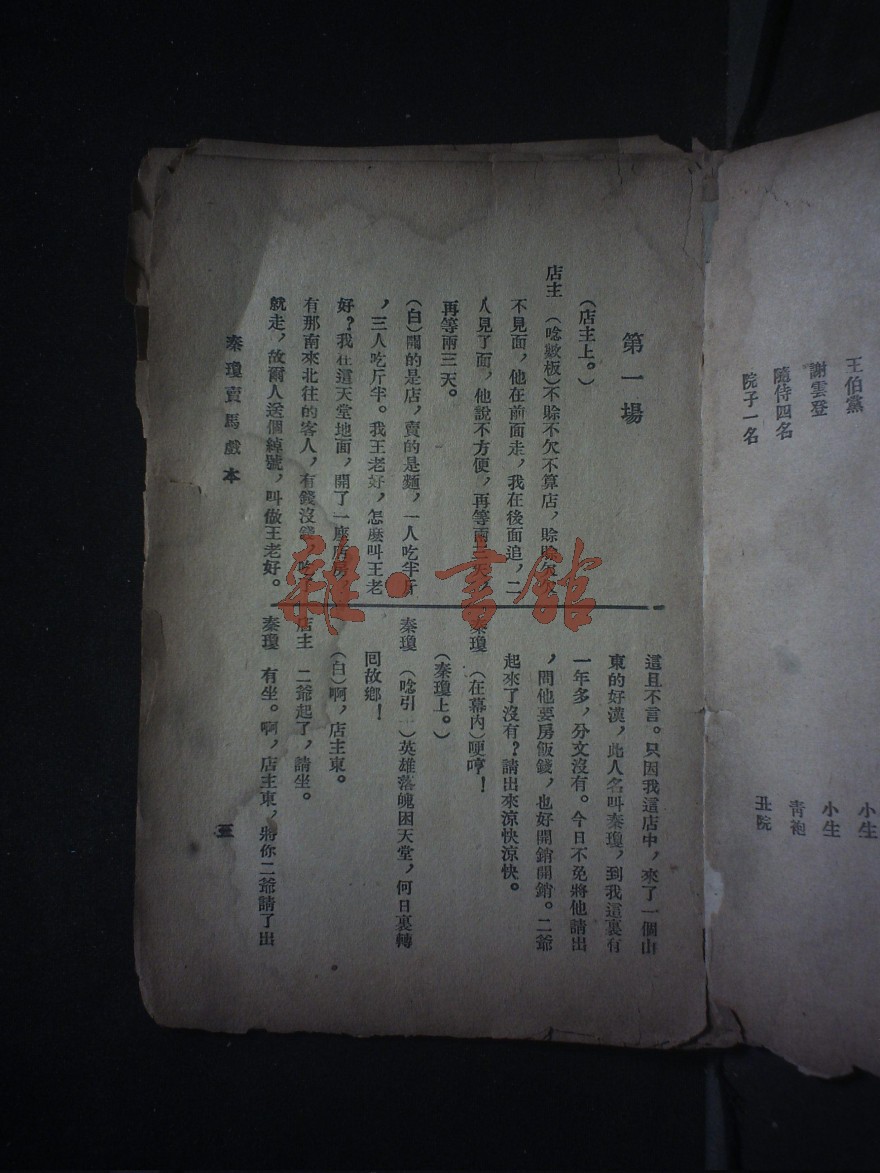 王伯黨 小生
謝雲登 小生
隨侍四名 青袍
院子一名 丑院
第一場
(店主上。)
店主 (唸數板)不賒不欠不算店,賒賒欠欠
不見面,他在前面走,我在後面追,二
人見了面,他說不方便,再等兩三天,
再等兩三天。
(白)開的是店,賣的是麵,一人吃半斤
,三人吃斤半。我王老好,怎麼叫王老
好?我在這天堂地面,開了一座店房,
有那南來北往的客人,有錢沒錢,吃
就走,故爾人送個綽號,叫做王老好。
這且不言。只因我這店中,來了一個山
東的好漢,此人名叫秦瓊,到我這裏有
一年多,分文沒有。今日不免將他請出
,問他要房飯錢,也好開銷開銷。二爺
起來了沒有?請出來涼快涼快。
秦瓊 (在幕內)哽哼!
(秦瓊上。)
秦瓊 (唸引)英雄落魄困天堂,何日裏轉
回故鄉!
(白)啊,店主東。
店主 二爺起了,請坐。
秦瓊 有坐。啊,店主東,將你二爺請了出
秦瓊賣馬戲本
三
雜·書館